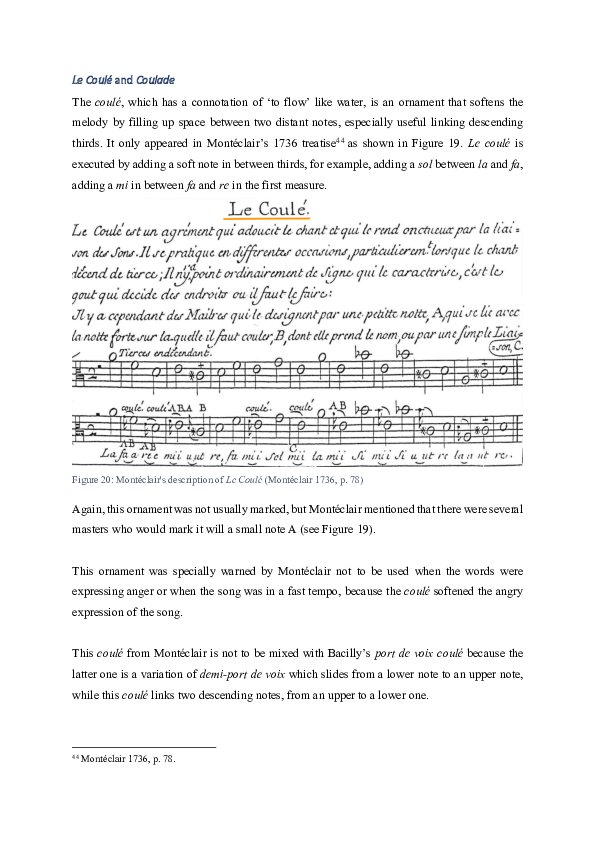 Le Coulé and Coulade
The coulé, which has a connotation of ‘to flow’ like water, is an ornament that softens the
melody by filling up space between two distant notes, especially useful linking descending
thirds. It only appeared in Montéclair’s 1736 treatise⁴⁴ as shown in Figure 19. Le coulé is
executed by adding a soft note in between thirds, for example, adding a sol between la and fa,
adding a mi in between fa and re in the first measure.
Le Coulé.
Le Coulé est un agrément qui adoucit le chant et qui le rend onctueux par la liai=
son des Sons. Il se pratique en differentes occasions, particulierem.t lorsque le chant
décend de tierce; Il n'y a point ordinairement de Signe qui le caracterise, c'est le
gout qui decide des endroits ou il faut le faire:
Il y a cependant des Maitres qui le designent par une petitte notte, A, qui se lie avec
la notte forte sur laquelle il faut couler, B, dont elle prend le nom, ou par une simple Liai=
=son, C.
Tierces endécendant.
coulé. coulé A B A B coulé. coulé A B
AB AB C
La fa a re e mi i u ut re, fa mi i sol mi i la mi i Si mi i Si u ut re la a ut re.
Figure 20: Montéclair's description of Le Coulé (Montéclair 1736, p. 78)
Again, this ornament was not usually marked, but Montéclair mentioned that there were several
masters who would mark it will a small note A (see Figure 19).
This ornament was specially warned by Montéclair not to be used when the words were
expressing anger or when the song was in a fast tempo, because the coulé softened the angry
expression of the song.
This coulé from Montéclair is not to be mixed with Bacilly’s port de voix coulé because the
latter one is a variation of demi-port de voix which slides from a lower note to an upper note,
while this coulé links two descending notes, from an upper to a lower one.
⁴⁴ Montéclair 1736, p. 78.